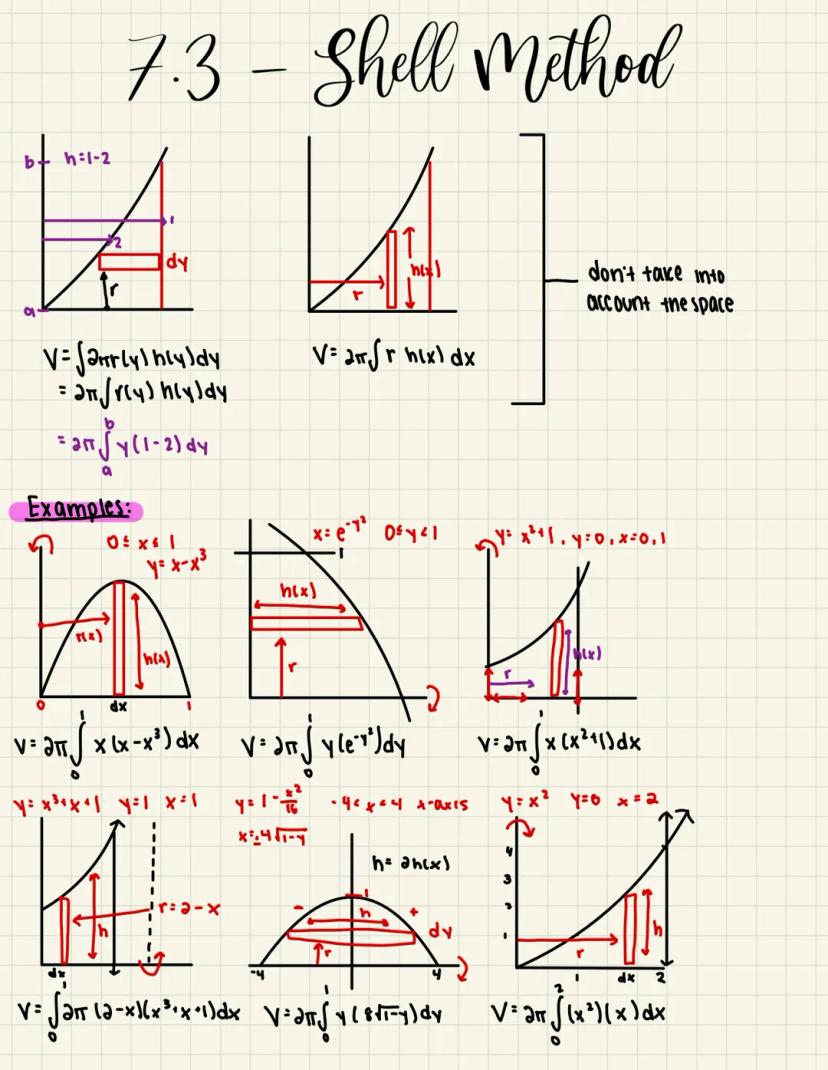 7.3 - Shell Method
b h=1-2
1
2
dy
r
a
h(x)
r
don't take into
account the space
V=∫2πr(y)h(y)dy
= 2π∫r(y) h(y)dy
= 2π∫ₐᵇ y(1-2) dy
V= 2π∫ r h(x) dx
Examples:
0≤x≤1
y=x-x³
r(x)
h(x)
0 dx 1
V= 2π∫₀¹ x(x-x³)dx
x=e^-y² 0≤y≤1
1
h(x)
r
V= 2π∫₀¹ y(e^-y²)dy
y=x²+1, y=0, x=0,1
r
h(x)
V= 2π∫₀¹ x(x²+1)dx
y=x³+x+1 y=1 x=1
r=2-x
h
dx
V=∫₀¹2π(2-x)(x³+x+1)dx
y=1-x²/16 -4<x<4 x-axis
x=±4√1-y
h=2h(x)
1
- h +
dy
r
-4 4
V=2π∫₀¹ y(8√1-y)dy
y=x² y=0 x=2
4
3
2
1
h
r
1 dx 2
V=2π∫₀²(x²)(x)dx